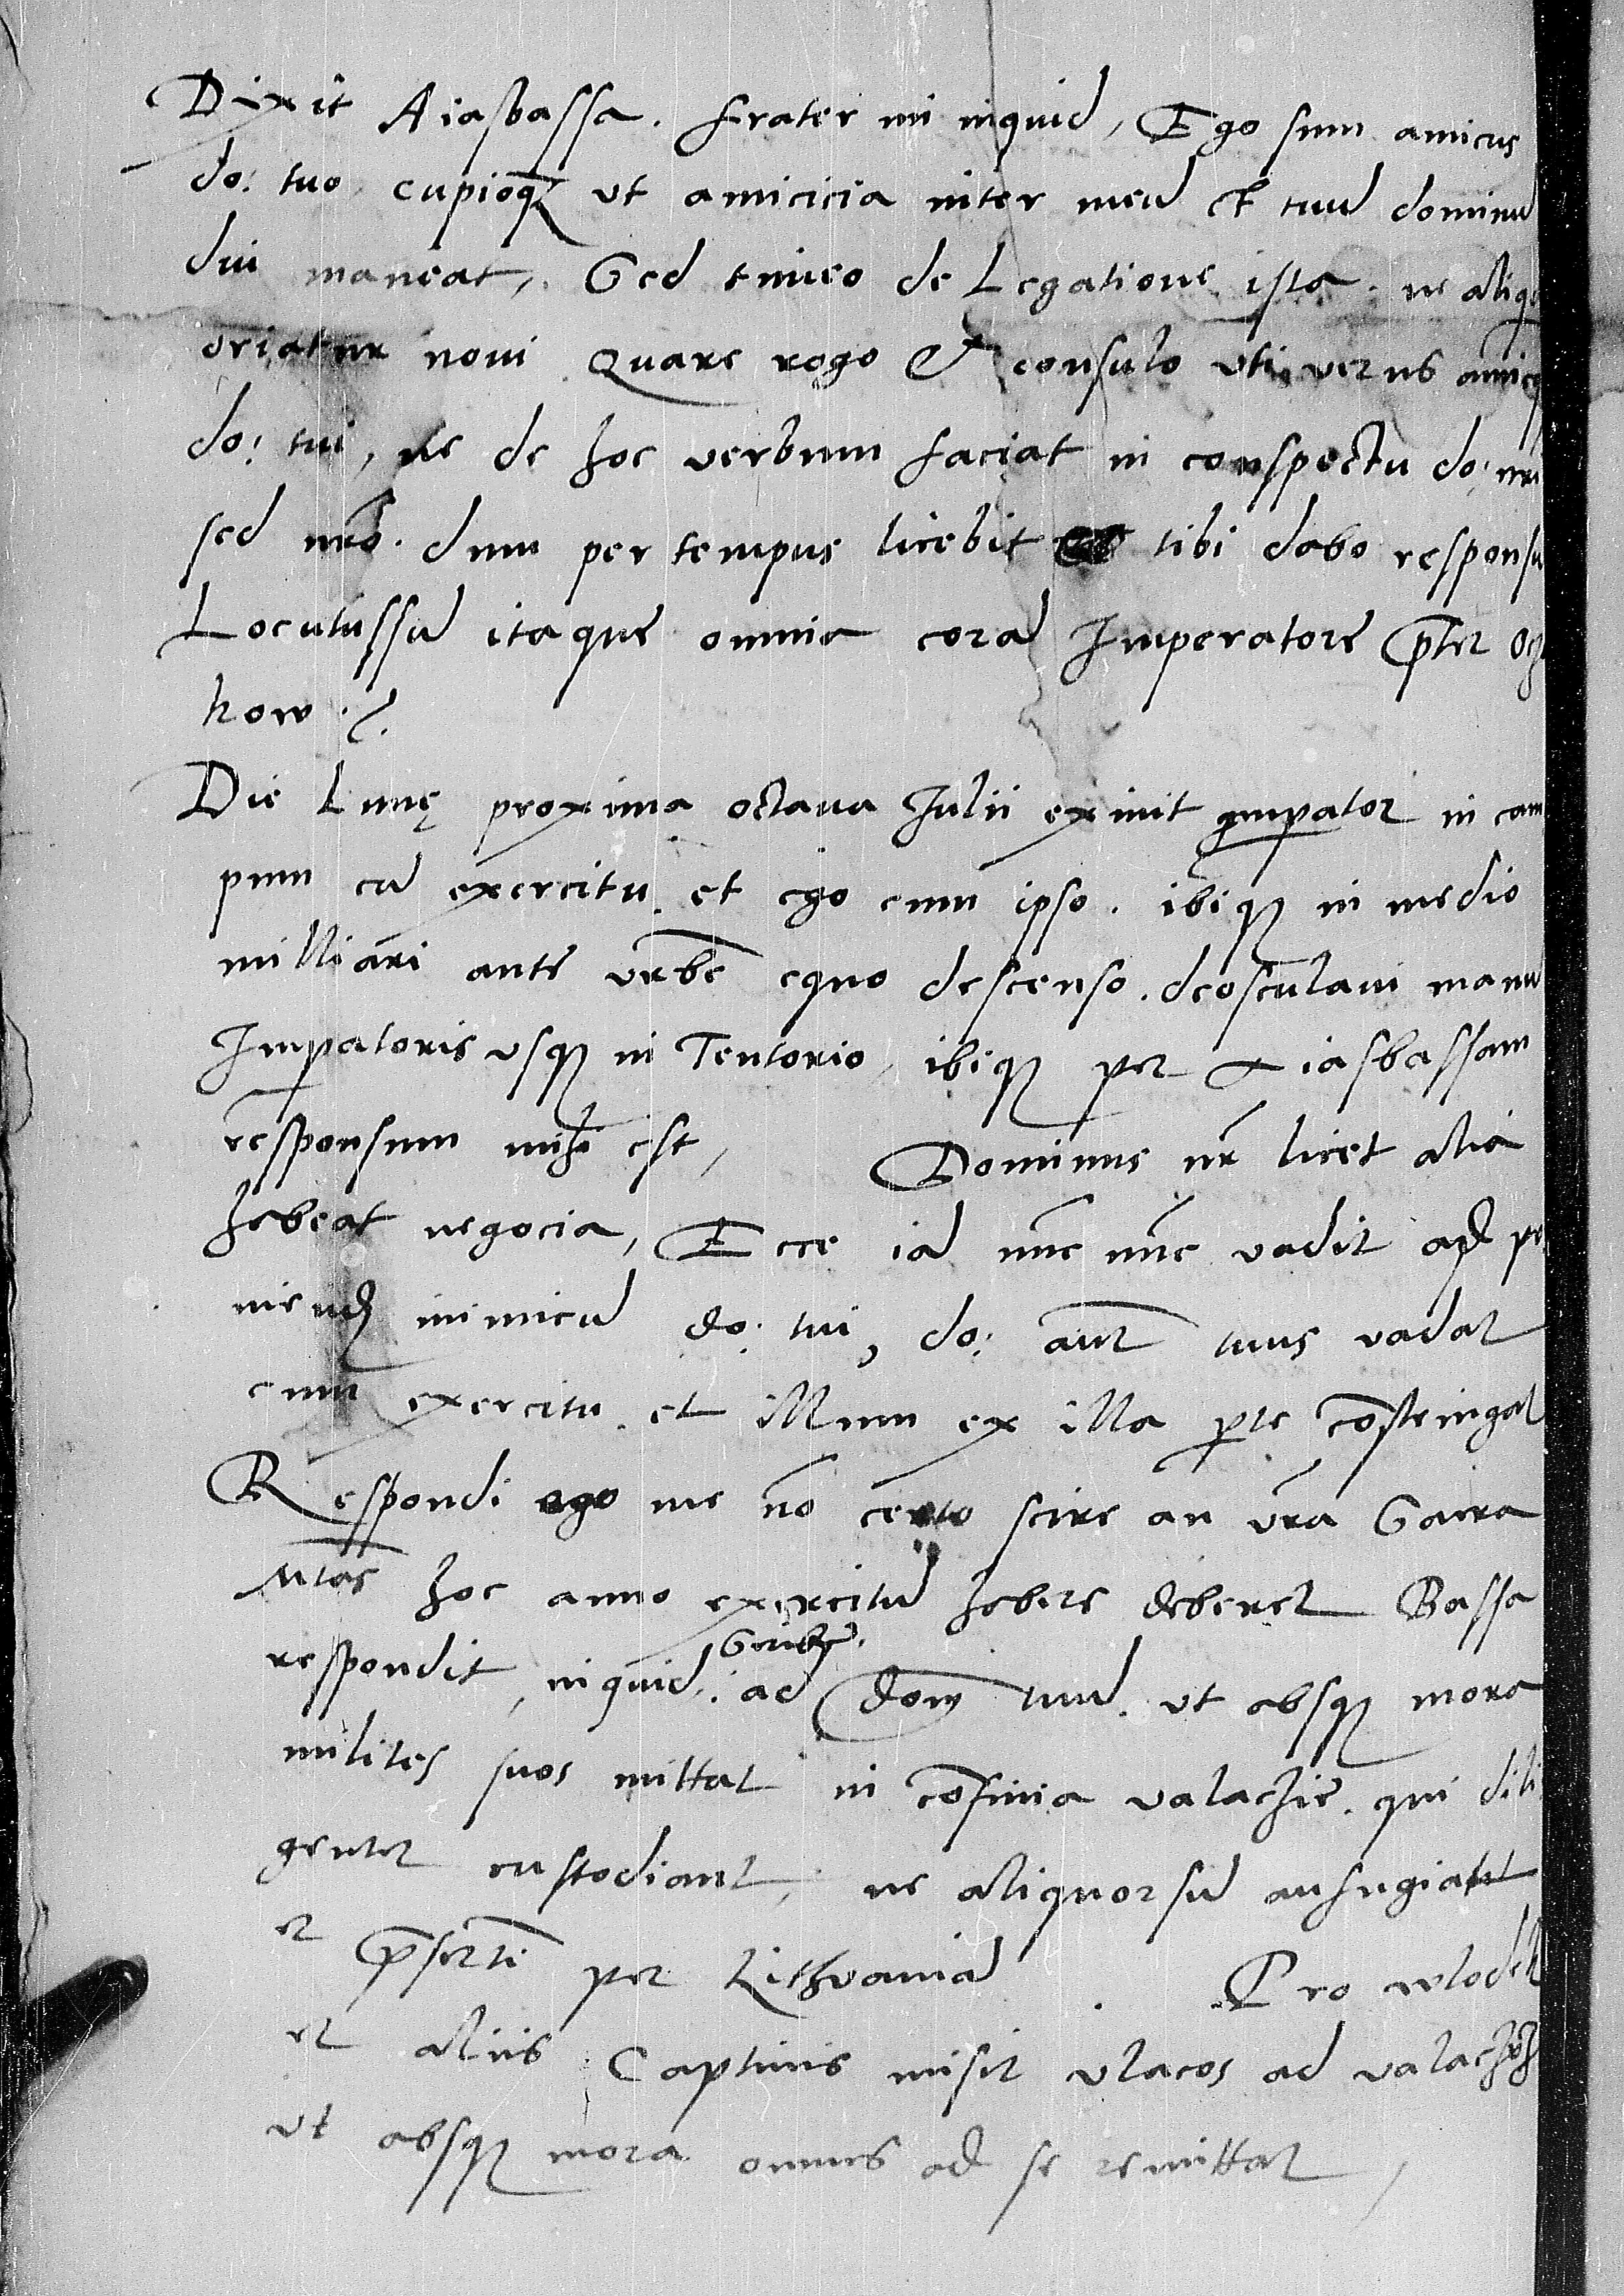 Dixit Aiasbassa. frater mi inquid, Ego sum amicus
do: tuo, cupioqʒ ut amicicia inter meū et tuū dominū
diu maneat, Sed timeo de Legatione ista. ne aliqd
oriatur noui Quare rogo et consulo uti verus amicus
do: tui, ne de hoc verbum faciat in conspectu do: nri
sed dum per tempus licebit tibi dabo responsū
Locutussū itaque omnia corā Imperatore p̄ter Ocʒ
kow.
Die Lunę proxima octaua Julii exiuit impator in cam
pum cū exercitu. et ego cum ipso. ibiqʒ in medio
milliari ante vrbē equo descenso. deosculaui manū
Impatoris vsqʒ in Tentorio, ibiqʒ per Aiasbassam
responsum mihi est, Dominus nr̄ licet alia
habeat negocia, Ecce iā nūc nūc vadit ad pu
niendū inimicū do: tui, do: aut̄ tuus vadat
cum exercitu. et illum ex illa pte cōstringat
Respondi ego me nō certo scire an vr̄a Sacra
Mtas hoc anno exercitū habere deberet Bassa
respondit, inquid. Scribe. ad Dom̄ tuū. ut absqʒ mora
milites suos mittat in cōfinia valachie. qui dili
genter custodiant, ne aliquorsū aufugiat
et p̄sertī per Lithvaniā Pro wlodek
et aliis Captiuis misit vlacos ad valachū
ut absqʒ mora omnes ad se remittat,